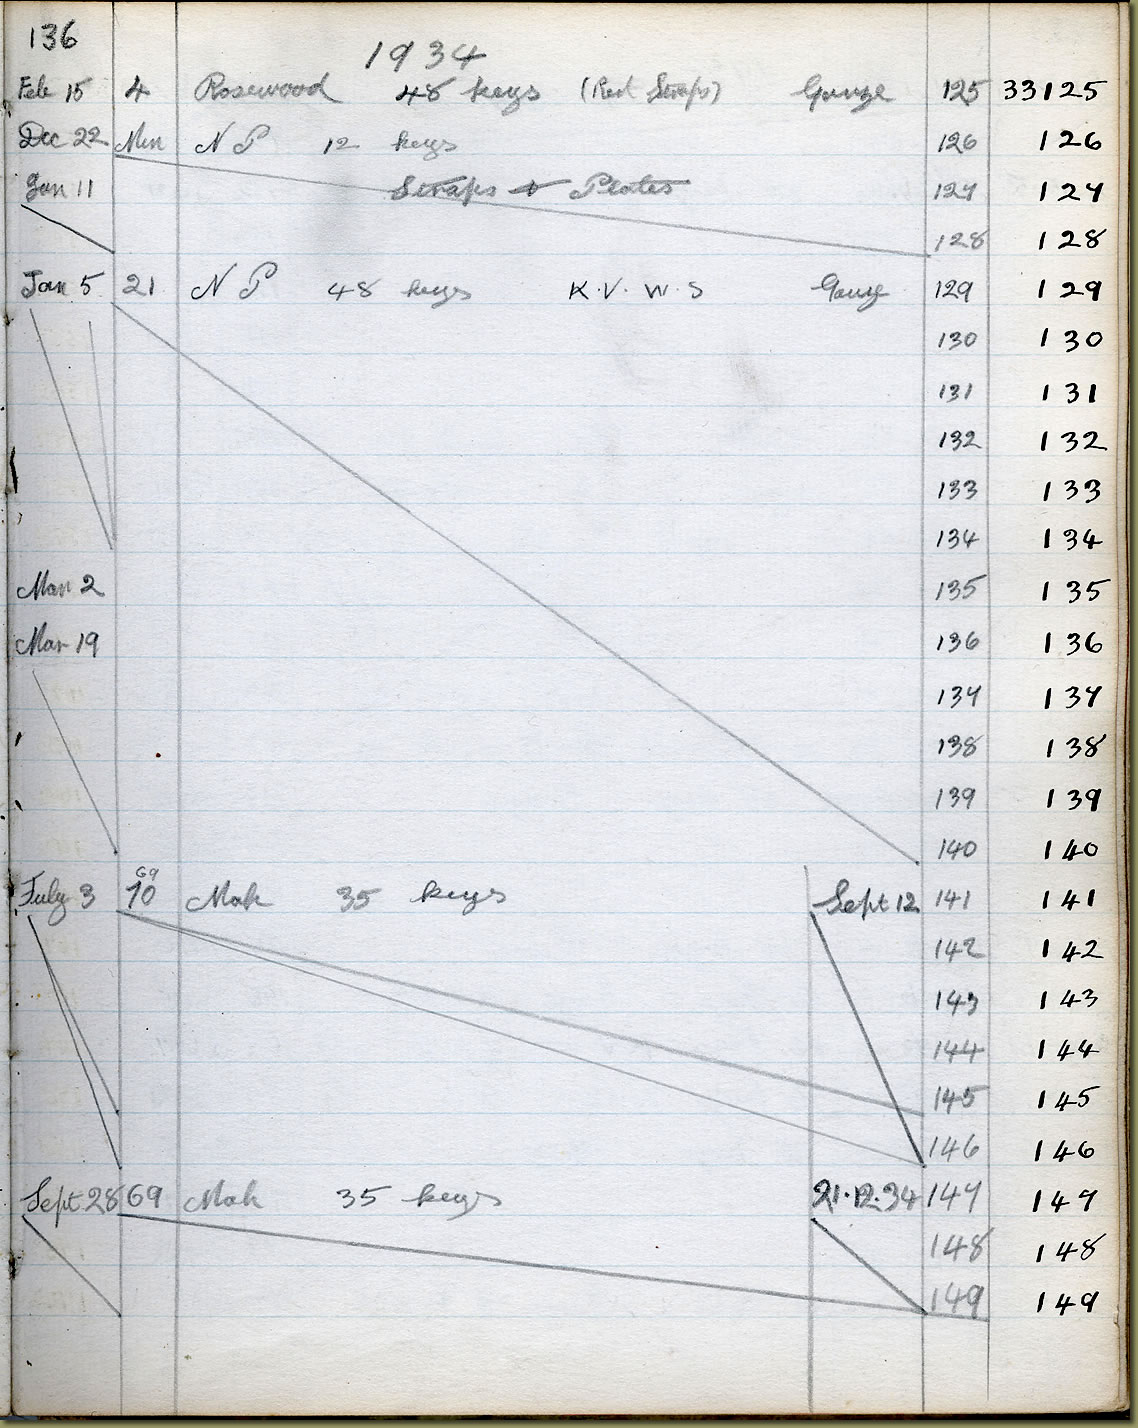 136
1934
Feb 15 4 Rosewood 48 keys (Red Straps) Gauze 125 33125
Dec 22 Min N P 12 keys 126 126
Jan 11 Straps + Plates 127 127
128 128
Jan 5 21 N P 48 keys K.V.W.S Gauze 129 129
130 130
131 131
132 132
133 133
134 134
Mar 2 135 135
Mar 19 136 136
137 137
138 138
139 139
140 140
69
July 3 70 Mah 35 keys Sept 12 141 141
142 142
143 143
144 144
145 145
146 146
Sept 28 69 Mah 35 keys 21.12.34 147 147
148 148
149 149